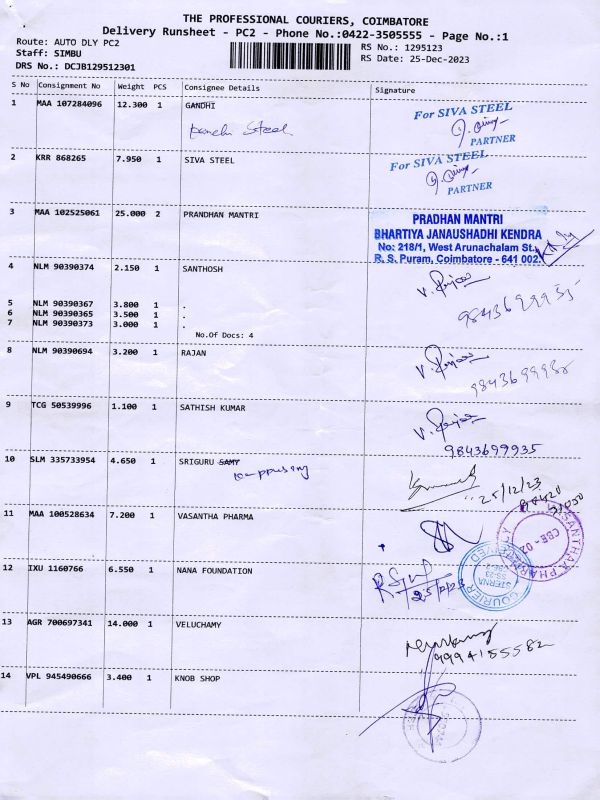 THE PROFESSIONAL COURIERS, COIMBATORE
Delivery Runsheet - PC2 - Phone No.:0422-3505555 - Page No.:1
Route: AUTO DLY PC2
Staff: SIMBU
DRS No.: DCJB129512301
RS No.: 1295123
RS Date: 25-Dec-2023
S No Consignment No Weight PCS Consignee Details Signature
1 MAA 107284096 12.300 1 GANDHI
For SIVA STEEL
PARTNER
2 KRR 868265 7.950 1 SIVA STEEL
For SIVA STEEL
PARTNER
3 MAA 102525061 25.000 2 PRANDHAN MANTRI
PRADHAN MANTRI
BHARTIYA JANAUSHADHI KENDRA
No: 218/1, West Arunachalam St.,
R. S. Puram, Coimbatore - 641 002.
4 NLM 90390374 2.150 1 SANTHOSH
5 NLM 90390367 3.800 1 .
6 NLM 90390365 3.500 1 .
7 NLM 90390373 3.000 1 .
No.Of Docs: 4
9843699935
8 NLM 90390694 3.200 1 RAJAN
9843699935
9 TCG 50539996 1.100 1 SATHISH KUMAR
9843699935
10 SLM 335733954 4.650 1 SRIGURU SAMY
25/12/23
11 MAA 100528634 7.200 1 VASANTHA PHARMA
CBE-02
12 IXU 1160766 6.550 1 NANA FOUNDATION
13 AGR 700697341 14.000 1 VELUCHAMY
9994155582
14 VPL 945490666 3.400 1 KNOB SHOP